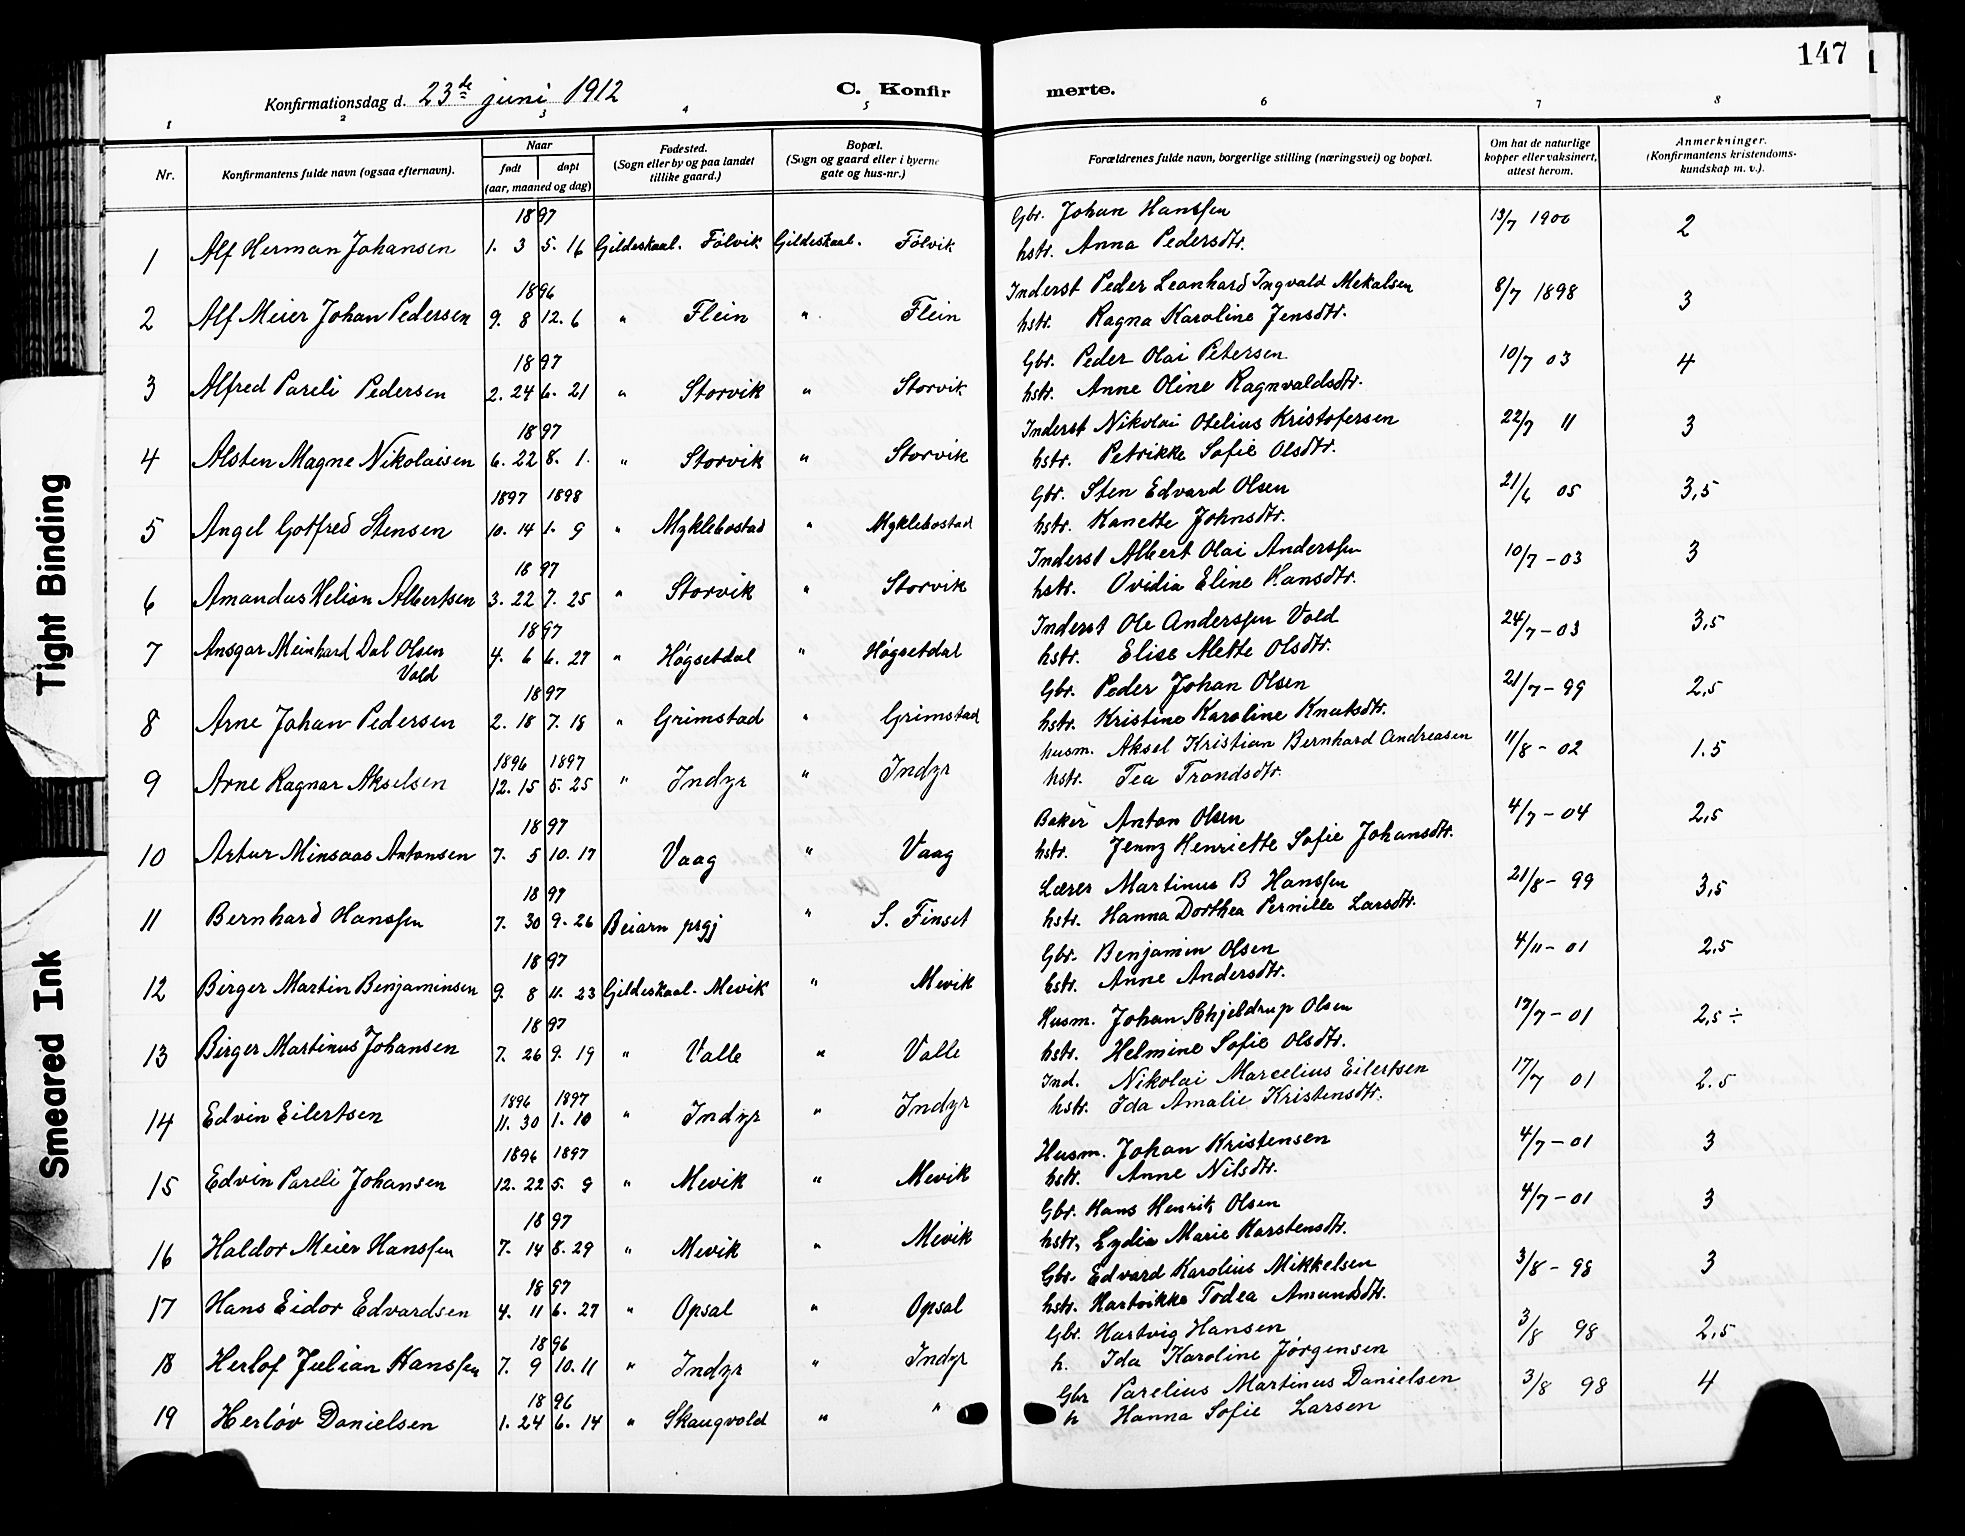 147
Konfirmationsdag d. 23de juni 1912 C. Konfir merte.
1 2 3 4 5 6 7 8
Nr. Konfirmantens fulde navn (ogsaa efternavn). Naar født døpt (aar, maaned og dag) Fødested. (Sogn eller by og paa landet tillike gaard.) Bopæl. (Sogn og gaard eller i byerne gate og hus-nr.) Forældrenes fulde navn, borgerlige stilling (næringsvei) og bopæl. Om hat de naturlige kopper eller vaksinert, attest herom. Anmerkninger. (Konfirmantens kristendoms-kundskap m. v.).
1897 Gbr. Johan Hanssen 13/7 1900 2
1 Alf Herman Johansen 1. 3 5. 16 Gildeskaal. Følvik Gildeskaal. Følvik hstr. Anna Pedersdtr.
1896 Inderst Peder Leonhard Ingvald Mekalsen 8/7 1898 3
2 Alf Meier Johan Pedersen 9. 8 12. 6 " Flein " Flein hstr. Ragna Karoline Jensdtr.
1897 Gbr. Peder Olai Petersen 10/7 03 4
3 Alfred Pareli Pedersen 2. 24 6. 21 " Storvik " Storvik hstr. Anne Oline Ragnvaldsdtr.
1897 Inderst Nikolai Otelius Kristofersen 22/7 11 3
4 Alsten Magne Nikolaisen 6. 22 8. 1. " Storvik " Storvik hstr. Petrikke Sofie Olsdtr.
1897 1898 Gbr. Sten Edvard Olsen 21/6 05 3,5
5 Angel Gotfred Stensen 10. 14 1. 9 " Myklebostad " Myklebostad hstr. Kanette Johnsdtr.
1897 Inderst Albert Olai Anderssen 10/7 - 03 3
6 Amandus Helion Albertsen 3. 22 7. 25 " Storvik " Storvik hstr. Ovidia Eline Hansdtr.
1897 Inderst Ole Anderssen Vold 24/7 - 03 3,5
7 Ansgar Meinhard Dal Olsen Vold 4. 6 6. 27 " Høgsetdal " Høgsetdal hstr. Elise Mette Olsdtr.
1897 Gbr. Peder Johan Olsen 21/7 - 99 2,5
8 Arne Johan Pedersen 2. 18 7. 18 " Grimstad " Grimstad hstr. Kristine Karoline Knutsdtr.
1896 1897 husm. Aksel Kristian Bernhard Andreasen 11/8 - 02 1.5
9 Arne Ragnar Akselsen 12. 15 5. 25 " Indyr " Indyr hstr. Tea Trondsdtr.
1897 Baker Anton Olsen 4/7 - 04 2,5
10 Artur Minsaas Antonsen 7. 5 10. 17 Vaag " Vaag hstr. Jenny Henriette Sofie Johansdtr.
1897 Lærer Martinus B Hanssen 21/8 - 99 3,5
11 Bernhard Hanssen 7. 30 9. 26 Beiarn prgj " S. Finset hstr. Hanna Dorthea Pernille Larsdtr.
1897 Gbr. Benjamin Olsen 4/11 - 01 2,5
12 Birger Martin Benjaminsen 9. 8 11. 23 Gildeskaal. Mevik " Mevik hstr. Anne Andersdtr.
1897 Husm. Johan Schjeldrup Olsen 17/7 - 01 2,5 ÷
13 Birger Martinus Johansen 7. 26 9. 19 " Valle " Valle hstr. Helmine Sofie Olsdtr.
1896 1897 Ind. Nikolai Marcelius Eilertsen 17/7 01 2.5
14 Edvin Eilertsen 11. 30 1. 10 " Indyr " Indyr hstr. Ida Amalie Kristensdtr.
1896 1897 Husm. Johan Kristensen 4/7 - 01 3
15 Edvin Pareli Johansen 12. 22 5. 9 " Mevik " Mevik hstr. Anne Nilsdtr.
1897 Gbr. Hans Henrik Olsen 4/7 - 01 3
16 Haldor Meier Hanssen 7. 14 8. 29 " Mevik " Mevik hstr. Lydia Marie Karstensdtr.
1897 Gbr. Edvard Karolius Mikkelsen 3/8 - 98 3
17 Hans Eidor Edvardsen 4. 11 6. 27 " Opsal " Opsal hstr. Hartvikke Todea Amundsdtr.
1896 Gbr. Hartvig Hansen 3/8 98 2,5
18 Herlof Julian Hanssen 7. 9 10. 11 " Indyr " Indyr h. Ida Karoline Jørgensen
1896 Gbr Parelius Martinus Danielsen 3/8 98 4
19 Herløv Danielsen 1. 24 6. 14 " Skaugvold " " h Hanna Sofie Larsen
Tight Binding
Smeared Ink